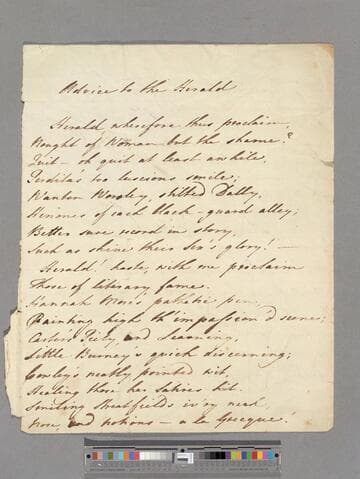 Advice to the Herald
Herald, wherefore thus proclaim,
Nought of Woman but the shame?
Quit – oh quit at least awhile,
Perdita's too luscious smile;
Wanton Worsley, stilted Dally,
Heroines of each black-guard alley;
Better sure record in story,
Such as shine their Sex's glory! –
Herald! haste, with me proclaim
Those of literary fame.
Hannah More's pathetic pen,
Painting high th' impassion'd scene;
Carter's Piety and Learning,
Little Burney's quick discerning;
Cowley's neatly pointed wit,
Healing those her satires hit.
Smiling Streatfield's iv'ry neck,
Nose, and notions – a la Grecque!